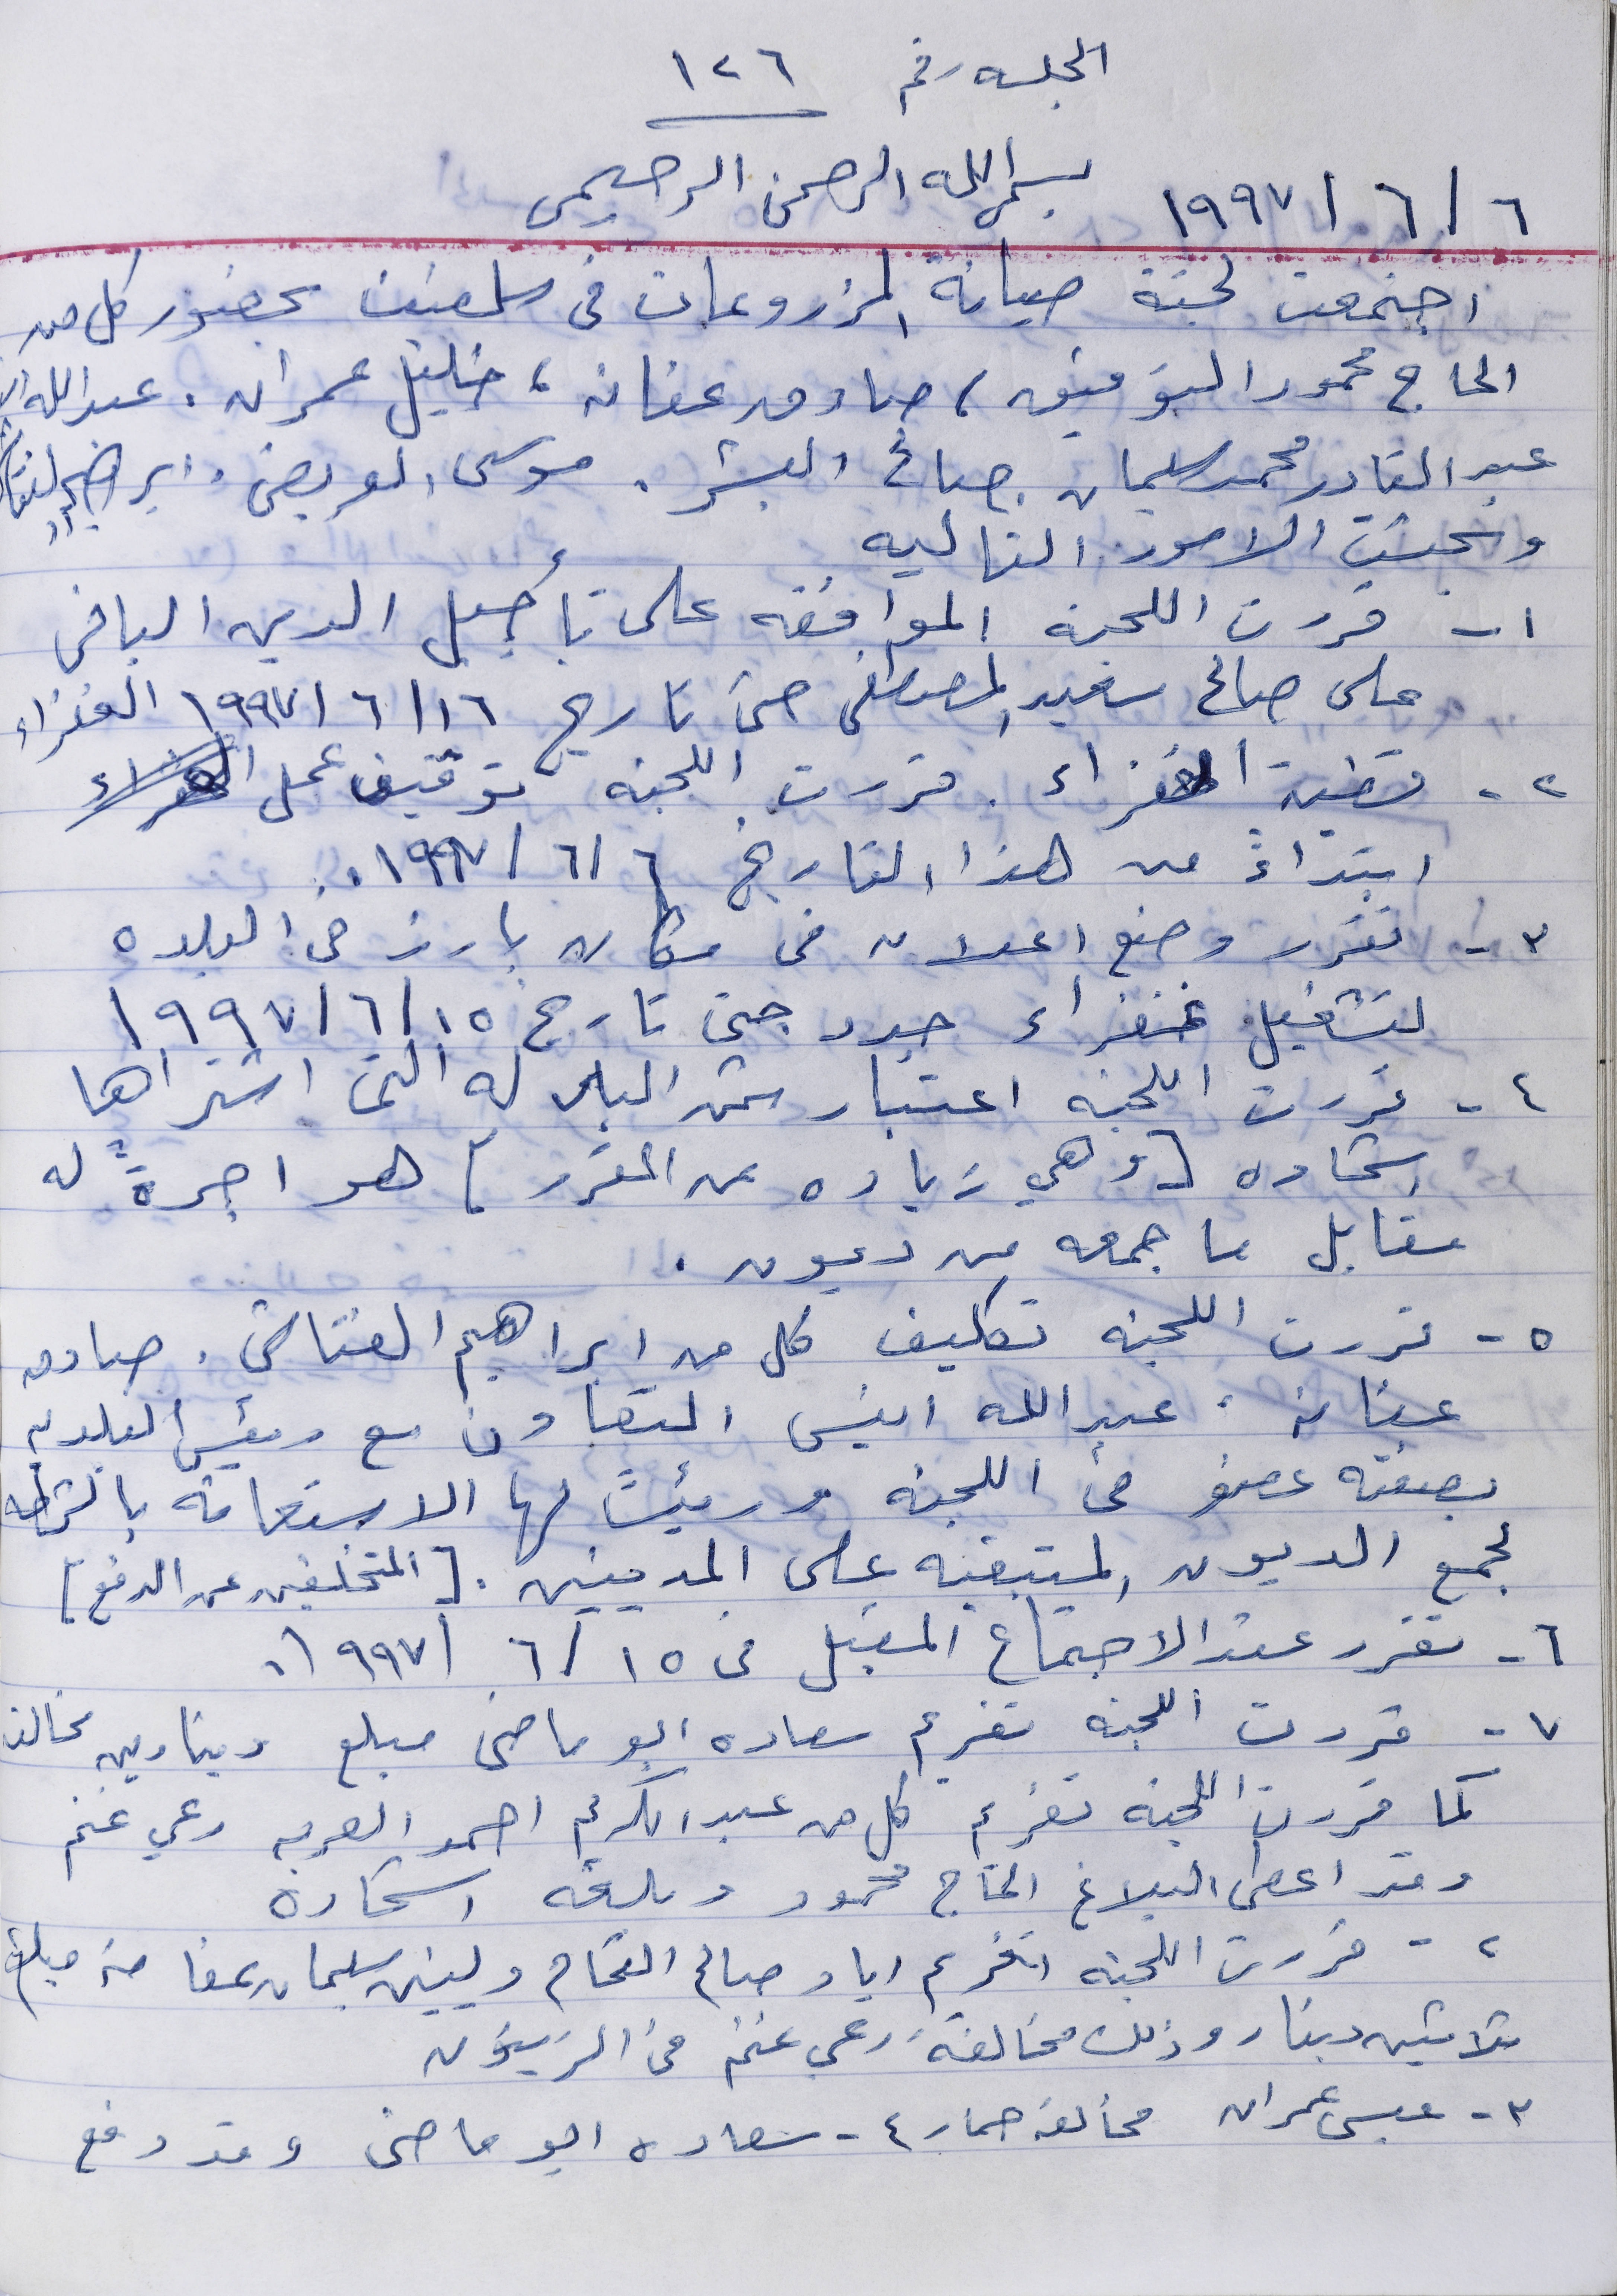 الجلسه رقم ١٢٦
بسم الله الرحمن الرحيم
٦ / ٦ / ١٩٩٧
اجتمعت لجنة صيانة المزروعات في سلفيت بحضور كل من
الحاج محمود التوفيق ، صادق عفانه ، خليل عمران . عبدالله
عبد القادر محمد سليمان . صالح البشر . موسى العريض . ابراهيم الفتاش
وبحثت الامور التاليه
١- قررت اللجنه الموافقه على تأجيل الدين الباقي
على صالح سعيد المصطفى حتى تاريخ ١٦/ ٦ / ١٩٩٧
٢- قضية الغفراء . قررت اللجنه توقيف عمل الغفراء
ابتداءً من هذا التاريخ ٦ / ٦ / ١٩٩٧ .
٣- تقرر وضع اعلان في مكان بارز في البلده
لتشغيل غفراء جدد حتى تاريخ ١٥ / ٦ / ١٩٩٧
٤- قررت اللجنه اعتبار ثمن البدله التي اشتراها
اشحاده [ وهي زياده عن المقرر ] هو اجرة له
مقابل ما جمعه من ديون .
٥- قررت اللجنه تكليف كل من ابراهيم الفتاش . صادق
عفانه ، عبدالله انيس التعاون مع رئيس البلديه
بصفته عضو في اللجنه ورئيساً لها الاستعانة بالشرطه
لجمع الديون المتبقيه على المدينين . [ المتخلفين عن الدفع ]
٦- تقرر عقد الاجتماع المقبل في ١٥ / ٦ / ١٩٩٧ .
٧- قررت اللجنه تغريم سعاده ابو ماضي مبلغ دينارين
كما قررت اللجنه تغريم كل من عبد الكريم احمد رعي غنم
وقد اعطى البلاغ الحاج محمود اشحادة
٢- قررت اللجنه تغريم اياد صالح وليين سليمان عفانه مبلغ
ثلاثين دينار وذلك مخالفة رعي غنم في الزيتون
٣- عيسى عمران مخالفة حمار ٤- سعاده ابو ماضي وقد دفع